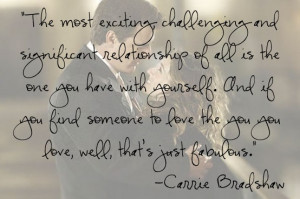 "The most exciting challenging and
significant relationship of all is the
one you have with yourself. And if
you find someone to love the you you
love, well, that's just fabulous."
-Carrie Bradshaw